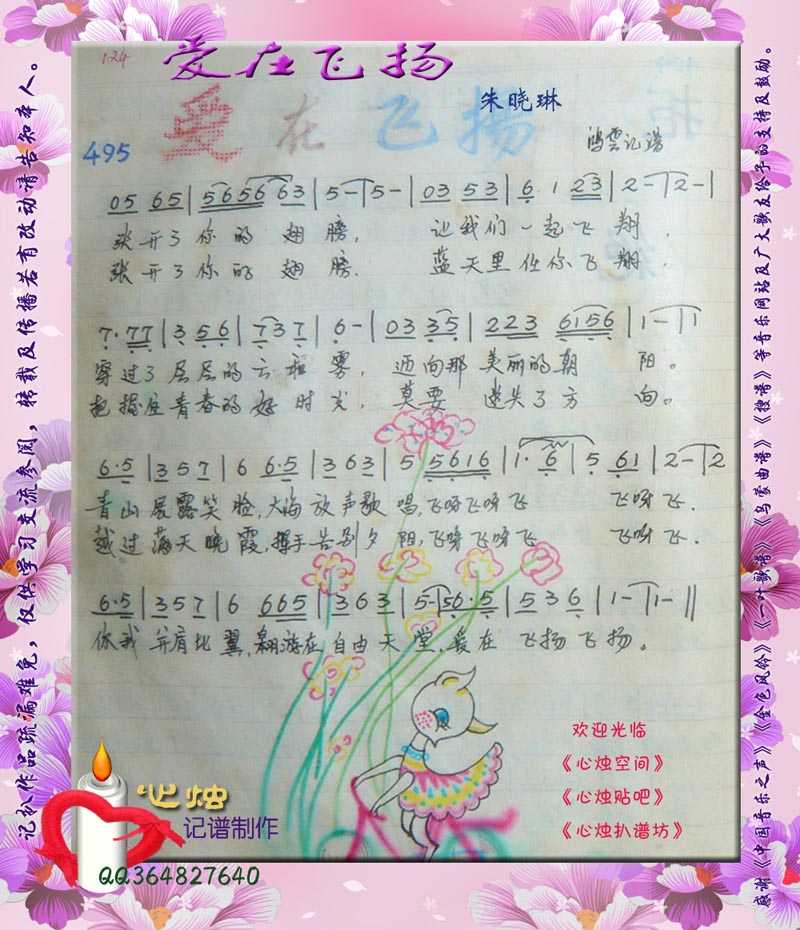 124
爱在飞扬
朱晓琳
爱在飞扬
鸿雲记谱
495
05 65 | 5656 63 | 5 - | 5 - | 03 53 | 6 1 23 | 2 - | 2 - |
张开了你的翅膀， 让我们一起飞翔，
张开了你的翅膀． 蓝天里任你飞翔．
7·77 | 3 56 | 7 3 7 | 6 - | 03 35 | 223 6156 | 1 - | 1
穿过了层层的云和雾，迈向那美丽的朝阳。
把握住青春的好时光，莫要迷失了方向。
6·5 | 3 5 7 | 6 6·5 | 3 6 3 | 5 5616 | 1· 6 | 5 61 | 2 - | 2
青山展露笑脸，大海放声歌唱，飞呀飞呀飞 飞呀飞．
越过满天晚霞，挥手告别夕阳，飞呀飞呀飞 飞呀飞．
6·5 | 3 5 7 | 6 665 | 3 6 3 | 5 - | 56·5 | 5 3 6 | 1 - | 1 - ||
你我并肩比翼，翱游在自由天堂，爱在飞扬飞扬。
欢迎光临
《心烛空间》
《心烛贴吧》
《心烛扒谱坊》
心烛
记谱制作
QQ364827640
记扒作品疏漏难免，仅供学习交流参阅，转载及传播若有改动请告知本人。
感谢《中国音乐之声》《金色风铃》《一叶歌谱》《乌蒙曲谱》《搜谱》等音乐网站及广大歌友给予的支持及鼓励。